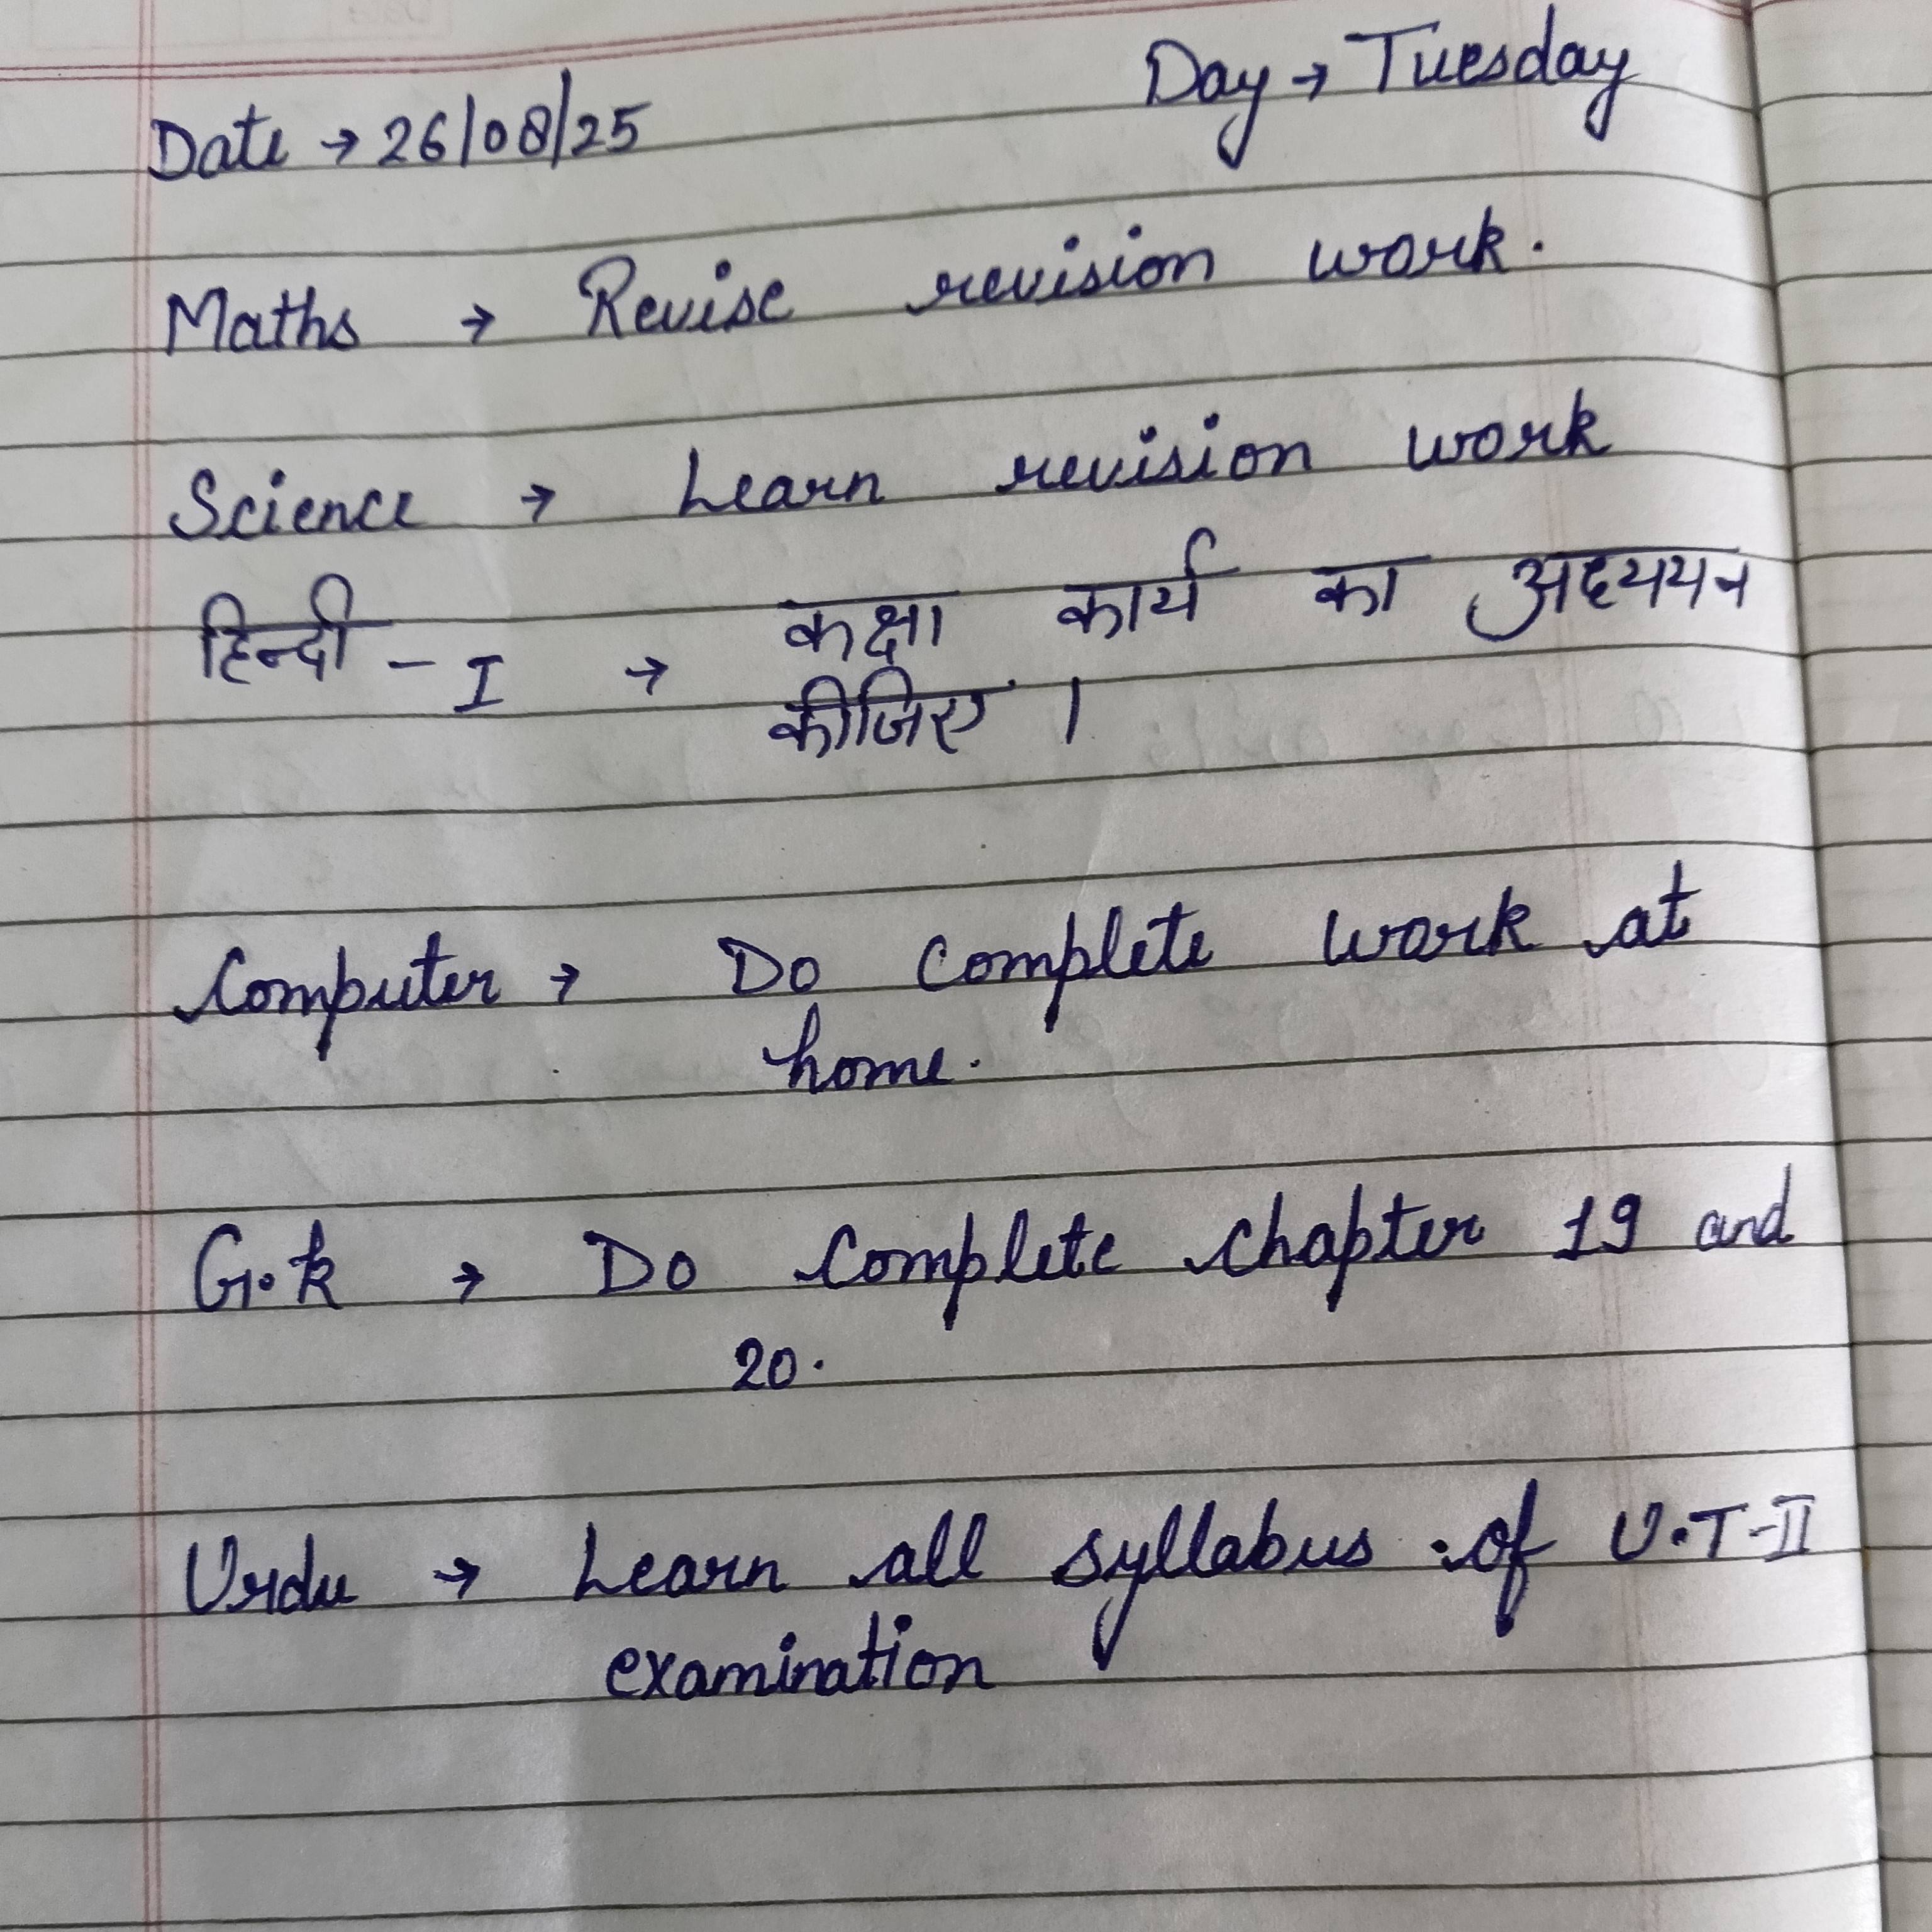 Date → 26/08/25 Day → Tuesday
Maths → Revise revision work.
Science → Learn revision work
हिन्दी - I → कक्षा कार्य का अध्ययन
कीजिए ।
Computer → Do complete work at
home.
G.k → Do complete chapter 19 and
20.
Urdu → Learn all syllabus of U.T-II
examination